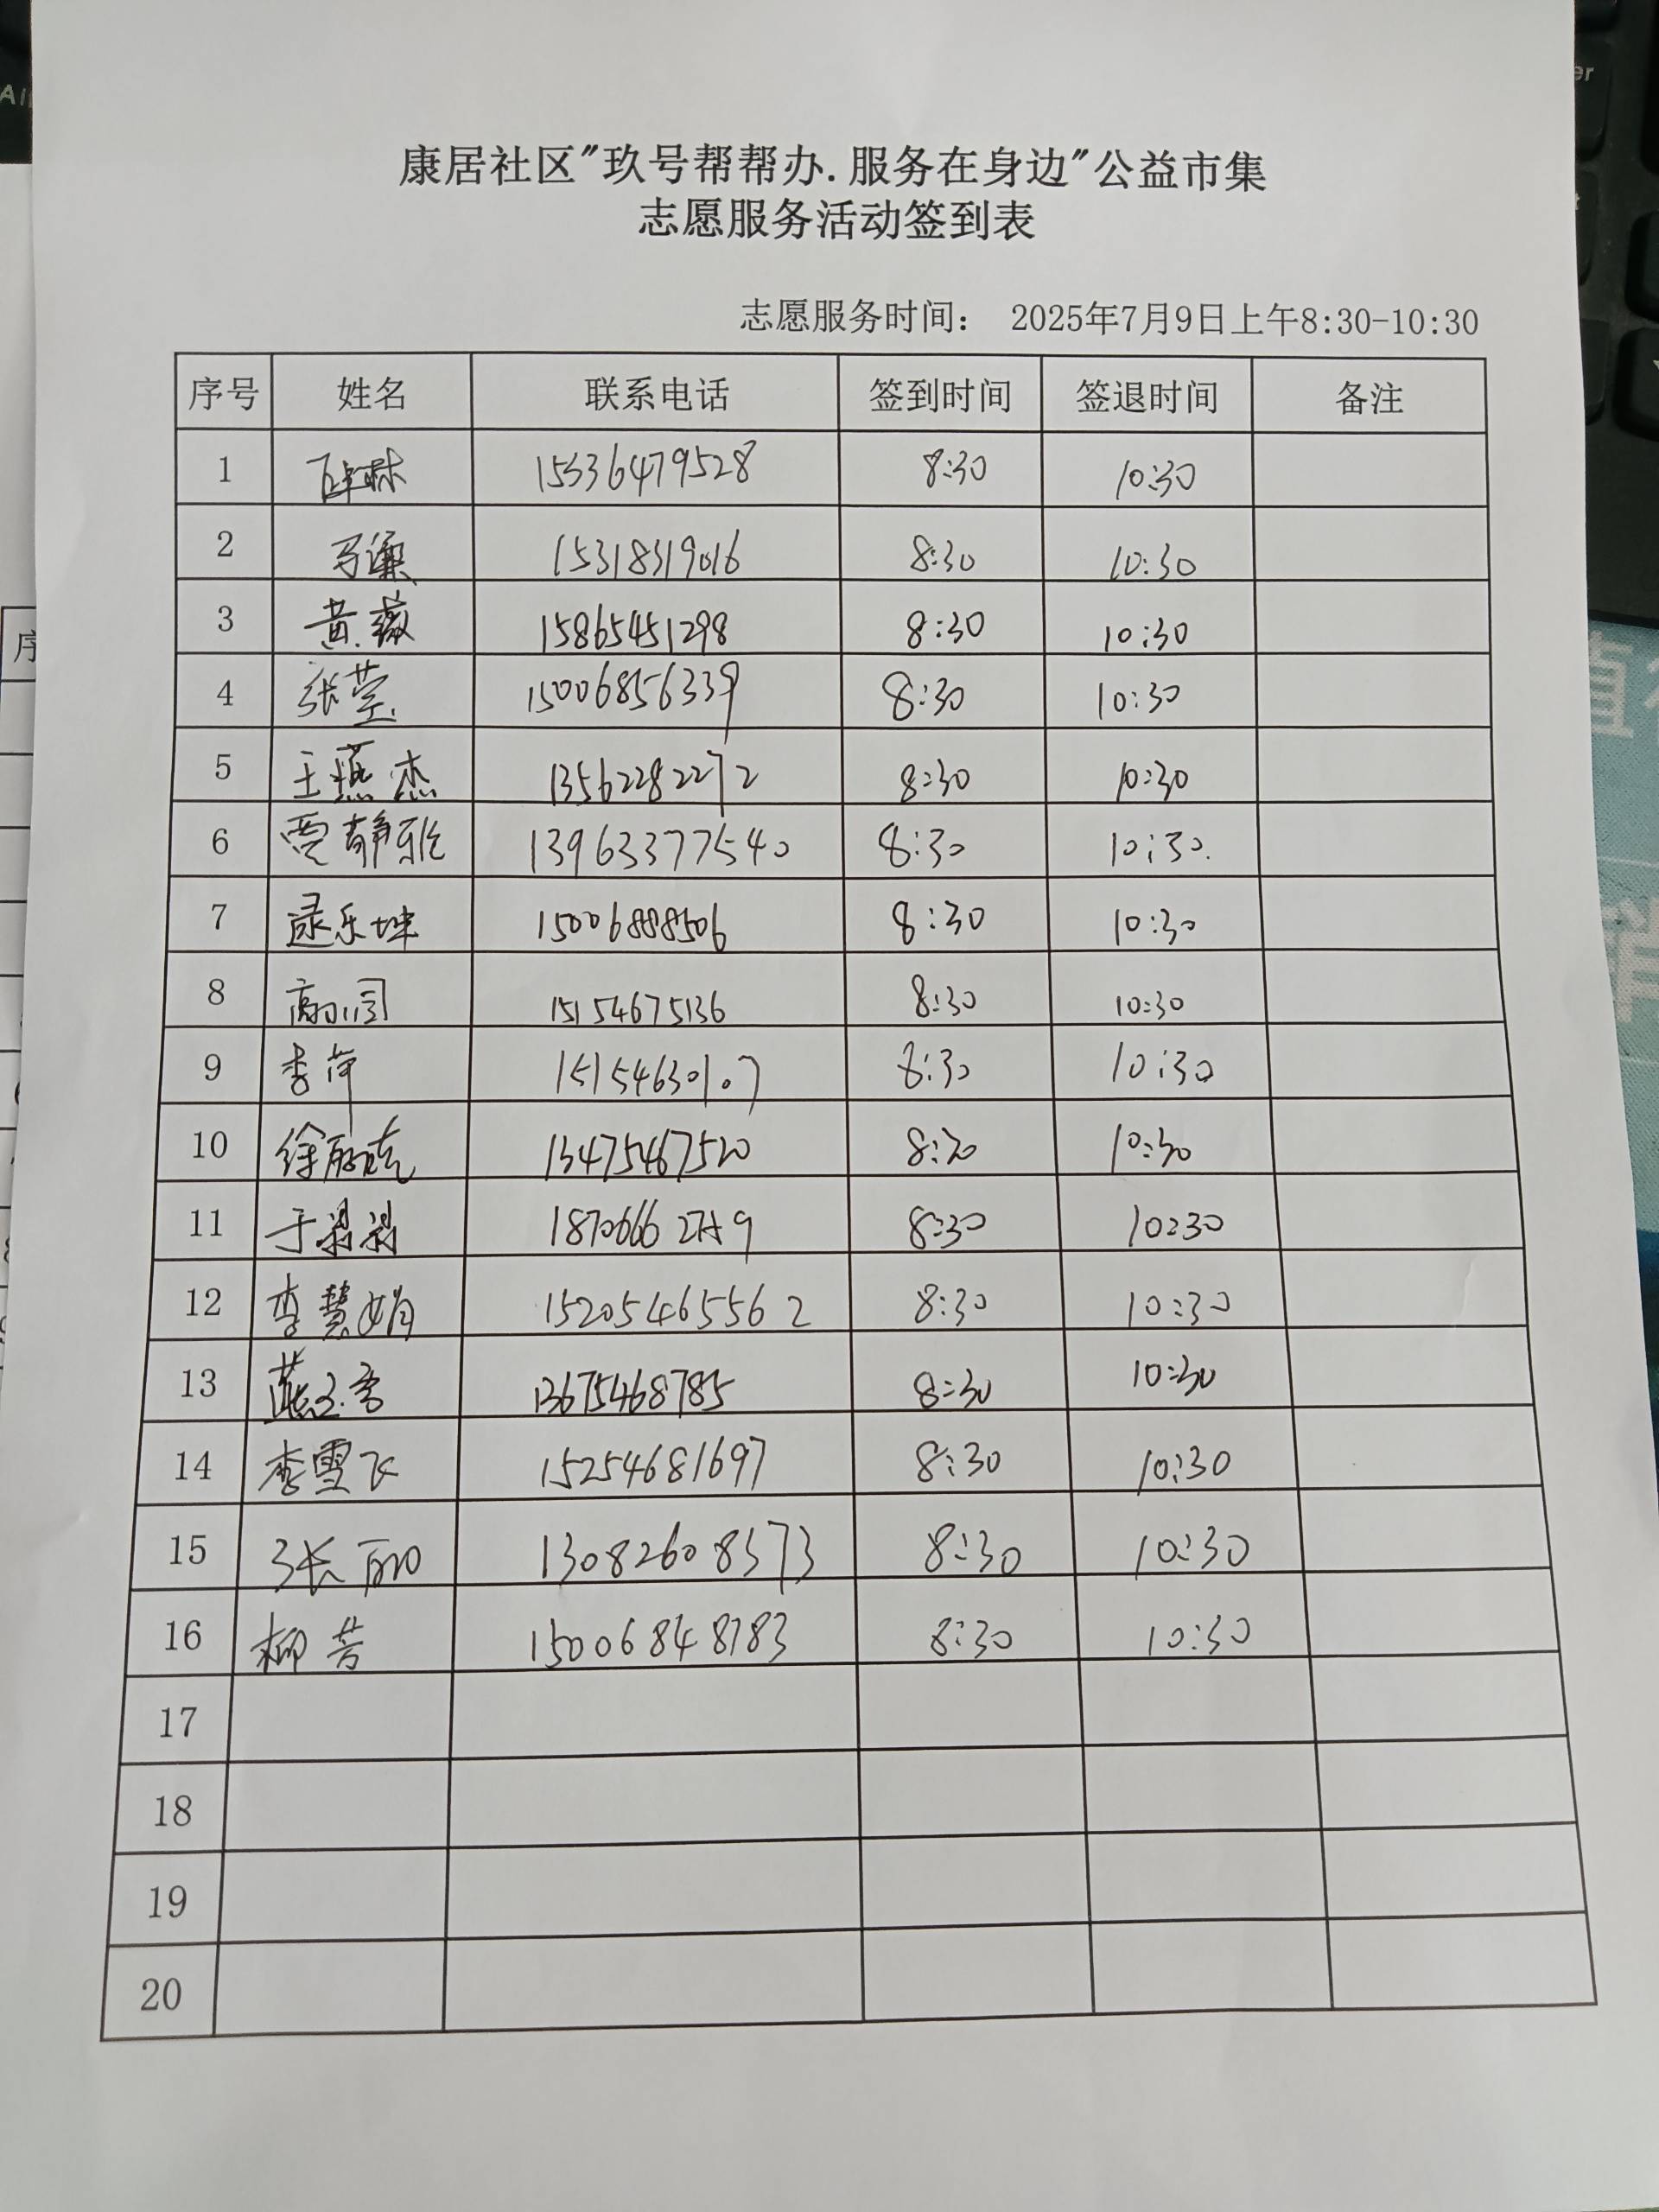 康居社区"玖号帮帮办.服务在身边"公益市集
志愿服务活动签到表
志愿服务时间： 2025年7月9日上午8:30-10:30
序号 姓名 联系电话 签到时间 签退时间 备注
1 15336479528 8:30 10:30
2 马潇 15318319016 8:30 10:30
3 黄薇 15865451298 8:30 10:30
4 张莹 15006856339 8:30 10:30
5 王燕杰 13562282272 8:30 10:30
6 贾静雅 13963377540 8:30 10:30
7 逯乐坤 15006888506 8:30 10:30
8 15154675136 8:30 10:30
9 李萍 15154630107 8:30 10:30
10 徐丽克 13475467520 8:30 10:30
11 8:30 10:30
12 李慧娟 15205465562 8:30 10:30
13 13675468785 8:30 10:30
14 李雪飞 15254681697 8:30 10:30
15 张丽 13082608573 8:30 10:30
16 柳芳 15006848783 8:30 10:30
17
18
19
20